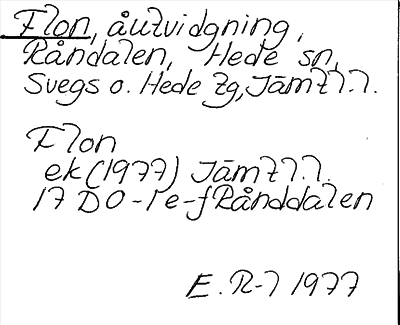 Flon, åutvidgning,
Råndalen, Hede sn,
Svegs o. Hede tg, Jämtl.l.
Flon
ek (1977) Jämtl.l.
17 D 0-1 e-f Rånddalen
E. R-l 1977